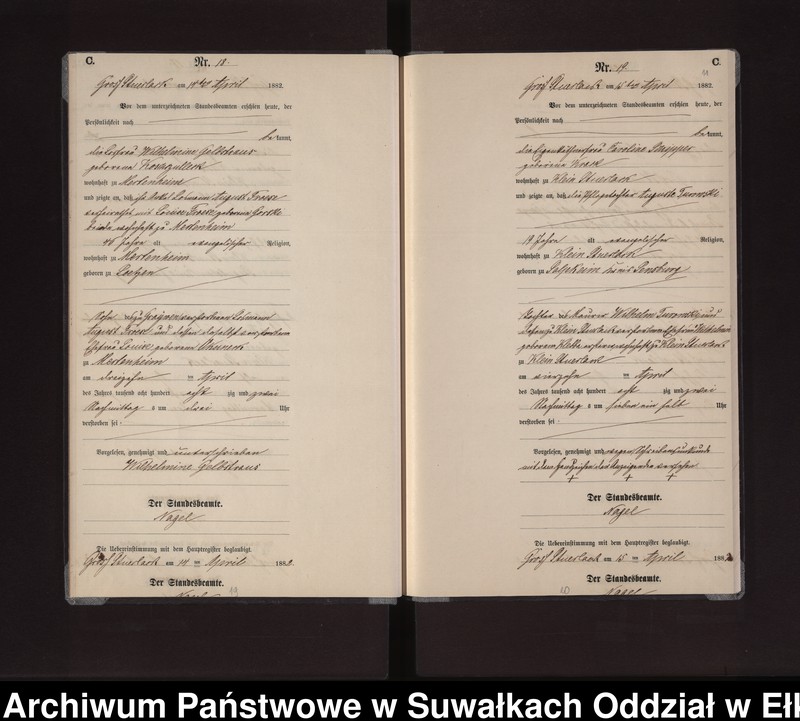 C.
Nr. 18.
Groß Stuerlack am 14ten April 1882.
Vor dem unterzeichneten Standesbeamten erschien heute, der
Persönlichkeit nach
be kannt,
die Losfrau Wilhelmine
geborene
wohnhaft zu Mertenheim
und zeigte an, daß ihr Losmann August
verheirathet mit Louise geborene
beide wohnhaft zu Mertenheim
48 Jahre alt evangelischer Religion,
wohnhaft zu Mertenheim
geboren zu Loetzen
Sohn des zu verstorbenen Losmann
August und dessen daselbst verstorbenen
Ehefrau Louise geborene
zu Mertenheim
am dreizehn ten April
des Jahres tausend acht hundert acht zig und zwei
Nachmittags um drei Uhr
verstorben sei
Vorgelesen, genehmigt und unterschrieben
Wilhelmine
Der Standesbeamte.
Nagel
Die Uebereinstimmung mit dem Hauptregister beglaubigt.
Groß Stuerlack am 14 ten April 1882
Der Standesbeamte.
Nagel
19
C.
Nr. 19.
Groß Stuerlack am 15ten April 1882.
Vor dem unterzeichneten Standesbeamten erschien heute, der
Persönlichkeit nach
be kannt,
die Eigenkäthnerfrau Caroline
geborene
wohnhaft zu Klein Stuerlack
und zeigte an, daß die Pflegetochter Auguste
19 Jahre alt evangelischer Religion,
wohnhaft zu Klein Stuerlack
geboren zu Kreis Sensburg
Tochter des Maurer Wilhelm und
zu Klein Stuerlack verstorbenen Ehefrau
geborene wohnhaft zu Klein Stuerlack
zu Klein Stuerlack
am vierzehn ten April
des Jahres tausend acht hundert acht zig und zwei
Nachmittags um sieben ein halb Uhr
verstorben sei
Vorgelesen, genehmigt und wegen Schreibensunkunde
mit dem Handzeichen der Anzeigenden versehen
+ + +
Der Standesbeamte.
Nagel
Die Uebereinstimmung mit dem Hauptregister beglaubigt.
Groß Stuerlack am 15 ten April 1882
Der Standesbeamte.
Nagel
Archiwum Państwowe w Suwałkach Oddział w Ełk